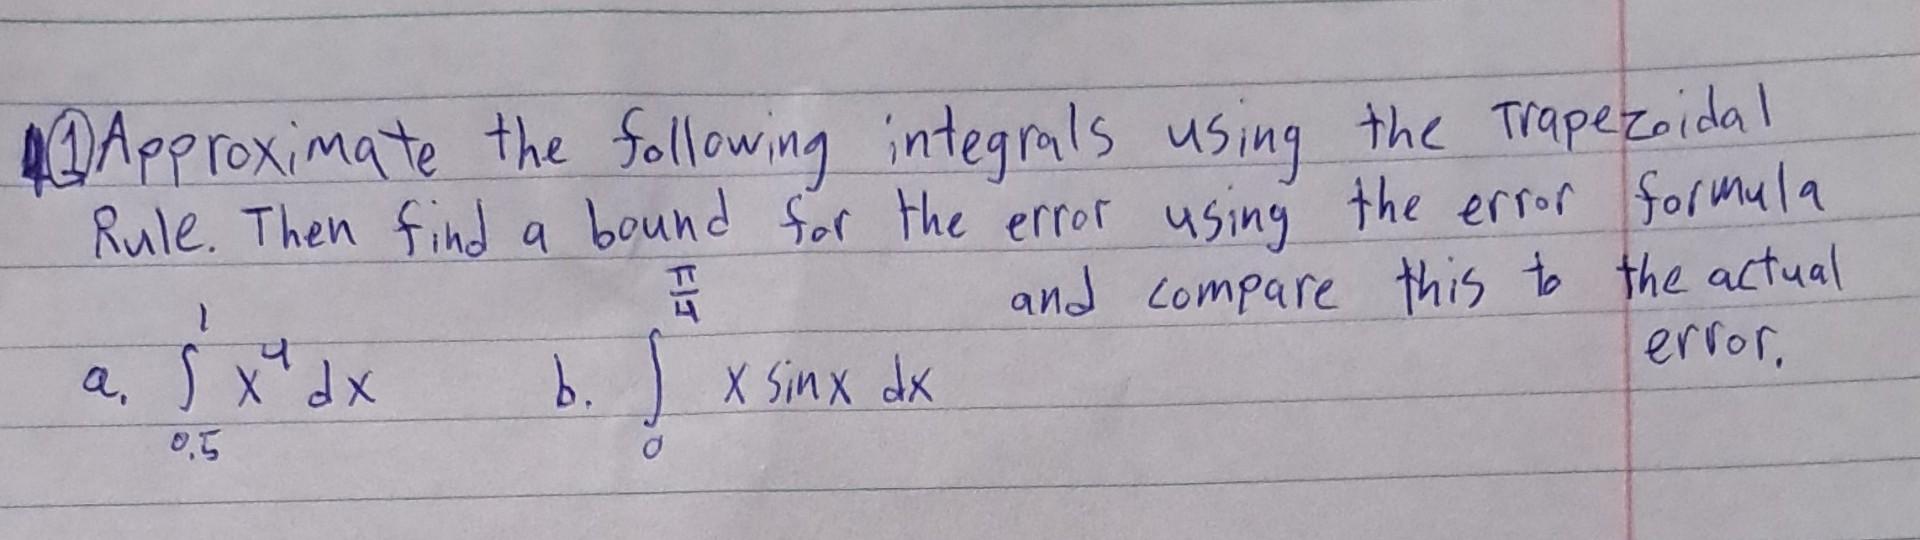 ① Approximate the following integrals using the Trapezoidal
Rule. Then find a bound for the error using the error formula
and compare this to the actual
error.
a. ∫_{0.5}^{1} x⁴ dx b. ∫_{0}^{π/4} x sinx dx